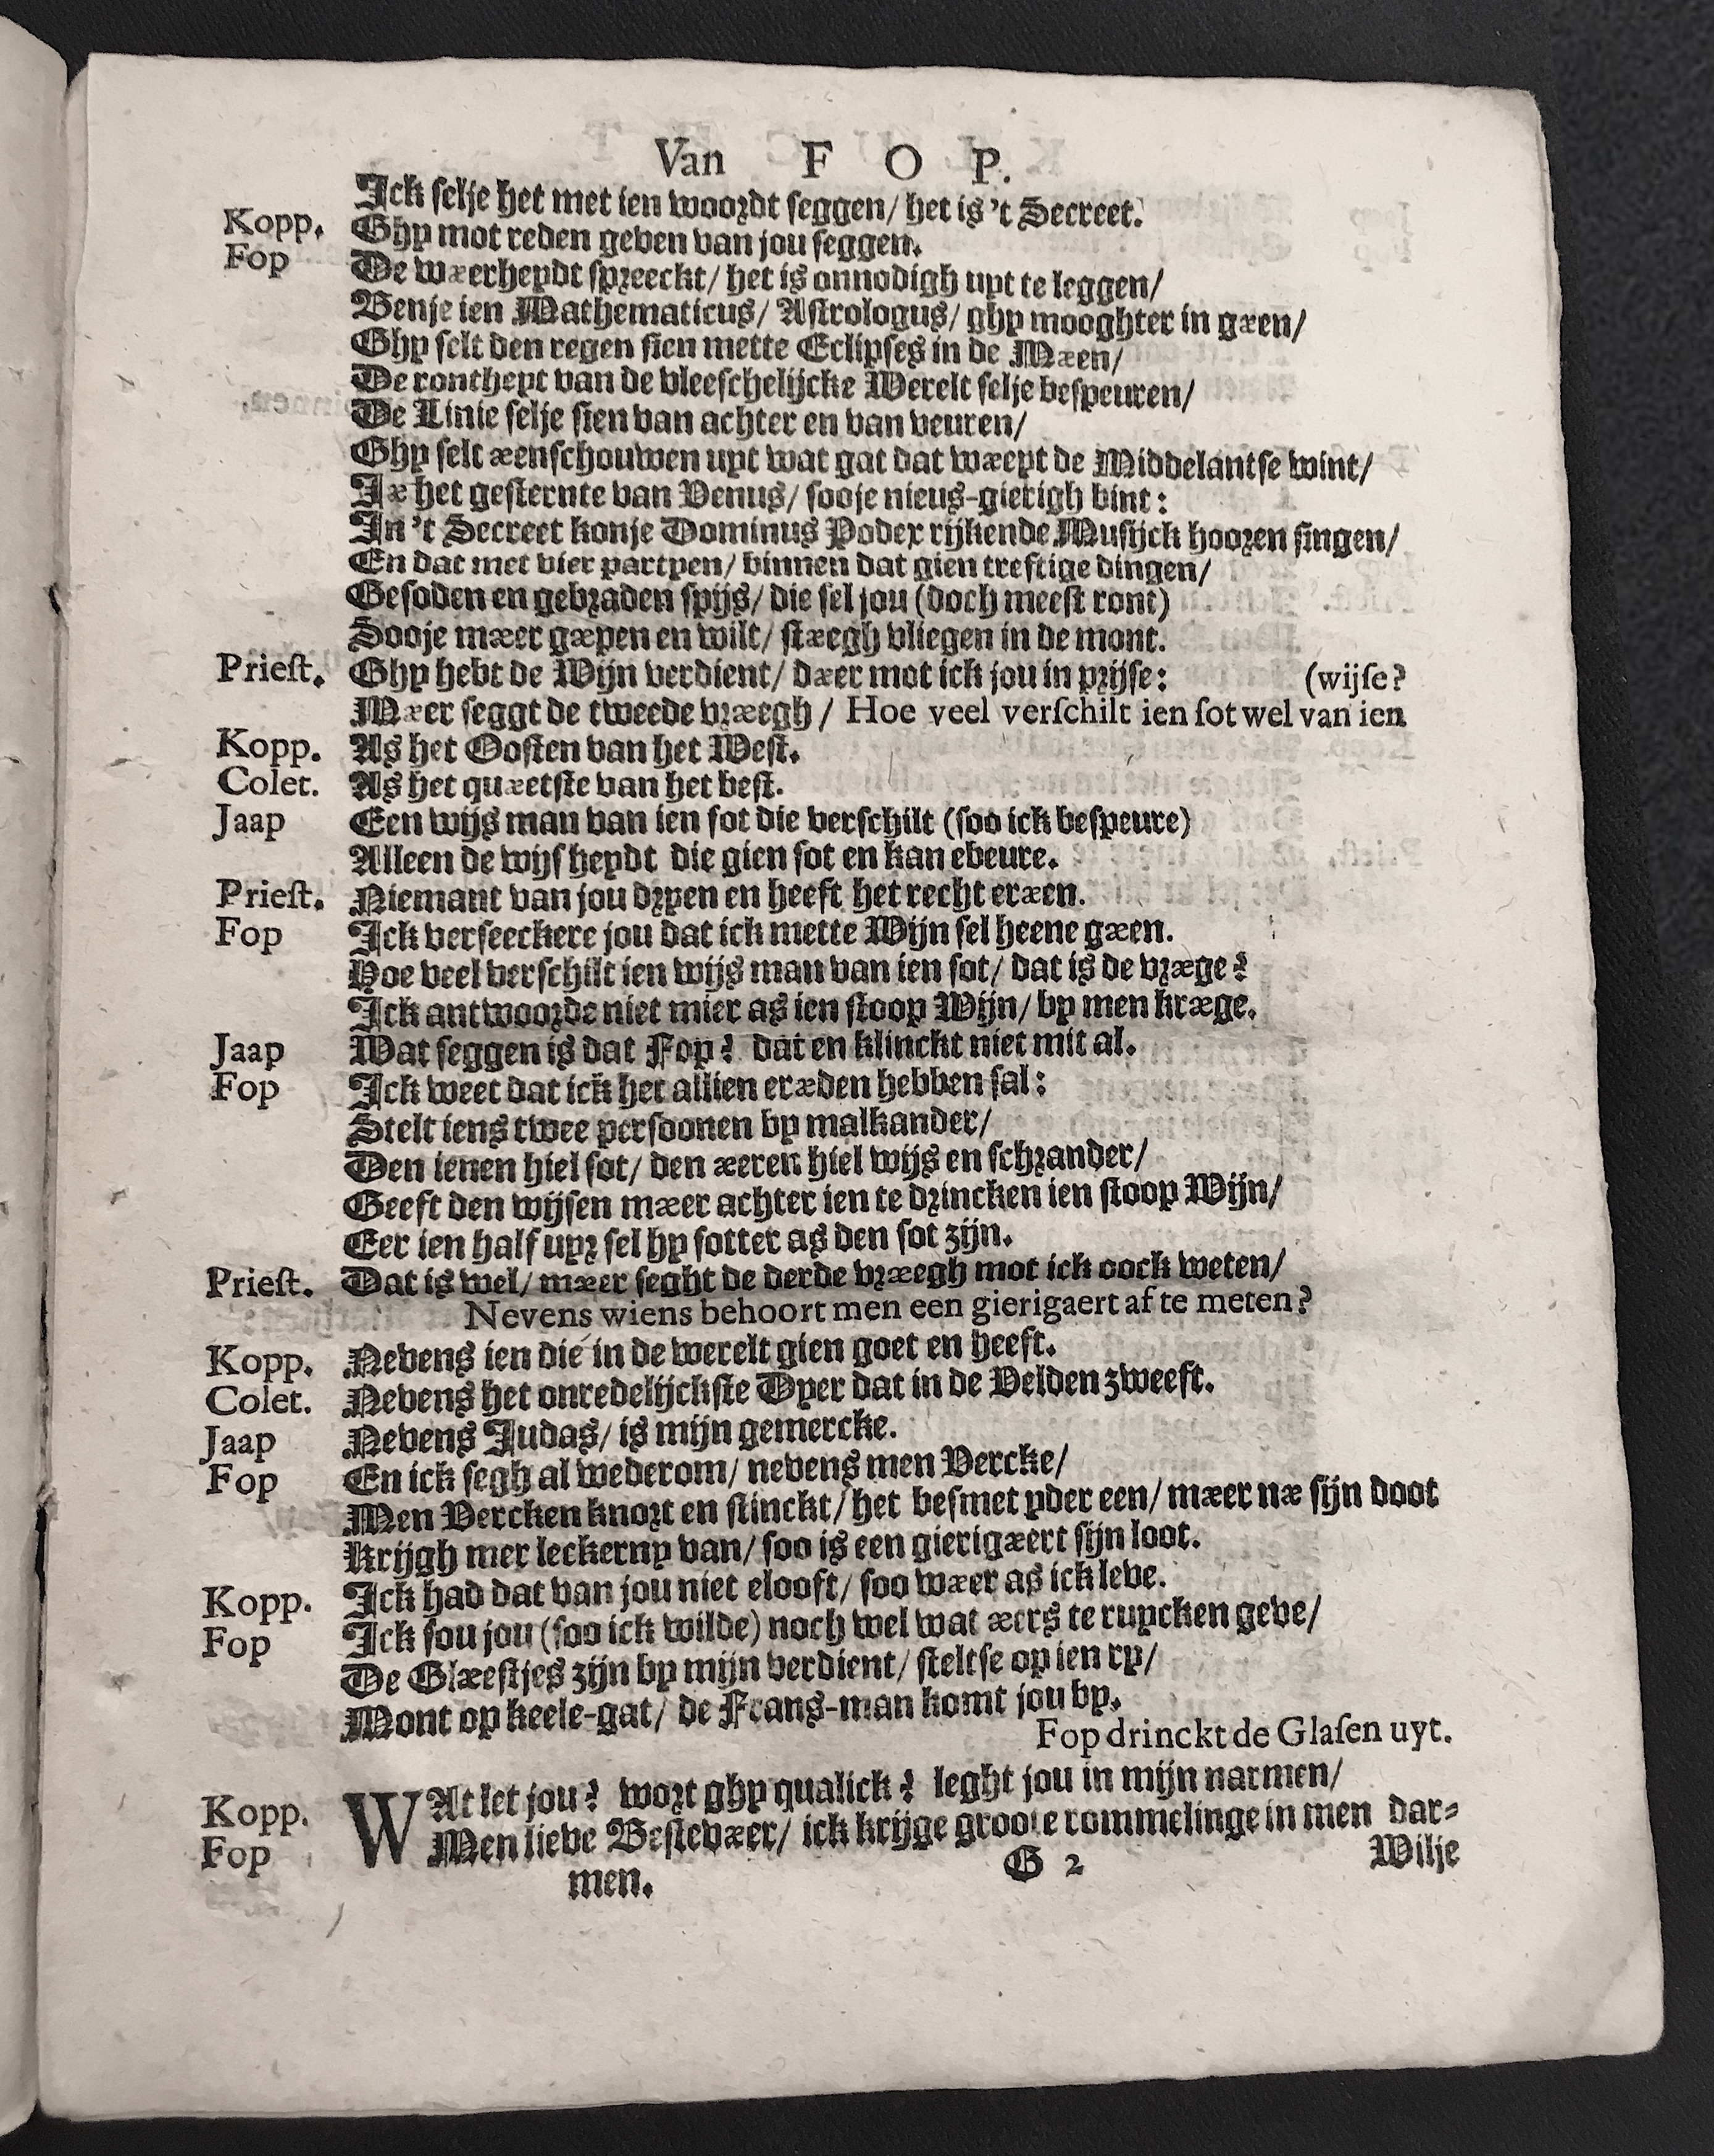 Van F O P.
Ick selje het met ien woordt seggen/ het is 't Secreet.
Kopp. Ghy mot reden geven van jou seggen.
Fop De wæerheydt spreeckt/ het is onnodigh uyt te leggen/
Benje ien Mathematicus/ Astrologus/ ghy mooghter in gæen/
Ghy selt den regen sien mette Eclipses in de Mæen/
De ronthept van de vleeschelijcke Werelt selje bespeuren/
De Linie selje sien van achter en van veuren/
Ghy selt æenschouwen uyt wat gat dat wæeyt de Middelantse wint/
Jæ het gesternte van Venus/ sooje nieus-gierigh bint:
In 't Secreet konje Dominus Podex rijkende Musijck hooren singen/
En dat met vier partyen/ binnen dat gien treftige dingen/
Gesoden en gebraden spijs/ die sel jou (doch meest ront)
Sooje mæer gæpen en wilt/ stæegh vliegen in de mont.
Priest. Ghy hebt de Wijn verdient/ dæer mot ick jou in prijse: (wijse?
Mæer seggt de tweede vræegh / Hoe veel verschilt ien sot wel van ien
Kopp. As het Oosten van het West.
Colet. As het quæetste van het best.
Jaap Een wijs man van ien sot die verschilt (soo ick bespeure)
Alleen de wijsheydt die gien sot en kan ebeure.
Priest. Niemant van jou dryen en heeft het recht eræen.
Fop Ick verseeckere jou dat ick mette Wijn sel heene gæen.
Hoe veel verschilt ien wijs man van ien sot/ dat is de vræge?
Ick antwoorde niet mier as ien stoop Wijn/ by men kræge.
Jaap Wat seggen is dat Fop? dat en klinckt niet mit al.
Fop Ick weet dat ick het allien eræden hebben sal:
Stelt iens twee persoonen by malkander/
Den ienen hiel sot/ den æeren hiel wijs en schrander/
Geeft den wijsen mæer achter ien te drincken ien stoop Wijn/
Eer ien half uyr sel hy sotter as den sot zijn.
Priest. Dat is wel/ mæer seght de derde vræegh mot ick oock weten/
Nevens wiens behoort men een gierigaert af te meten?
Kopp. Nevens ien die in de werelt gien goet en heeft.
Colet. Nevens het onredelijckste Dyer dat in de Velden zweeft.
Jaap Nevens Judas/ is mijn gemercke.
Fop En ick segh al wederom/ nevens men Vercke/
Men Vercken knort en stinckt/ het besmet yder een/ mæer næ sijn doot
Krijgh mer leckerny van/ soo is een gierigæert sijn loot.
Kopp. Ick had dat van jou niet elooft/ soo wæer as ick leve.
Fop Ick sou jou (soo ick wilde) noch wel wat æers te ruycken geve/
De Glæestjes zijn by mijn verdient/ steltse op ien ry/
Mont op keele-gat/ de Frans-man komt jou by.
Fop drinckt de Glasen uyt.
Kopp. WAt let jou? wort ghy qualick? leght jou in mijn narmen/
Fop Men lieve Bestevæer/ ick krijge groote rommelinge in men dar-
men. G 2 Wilje